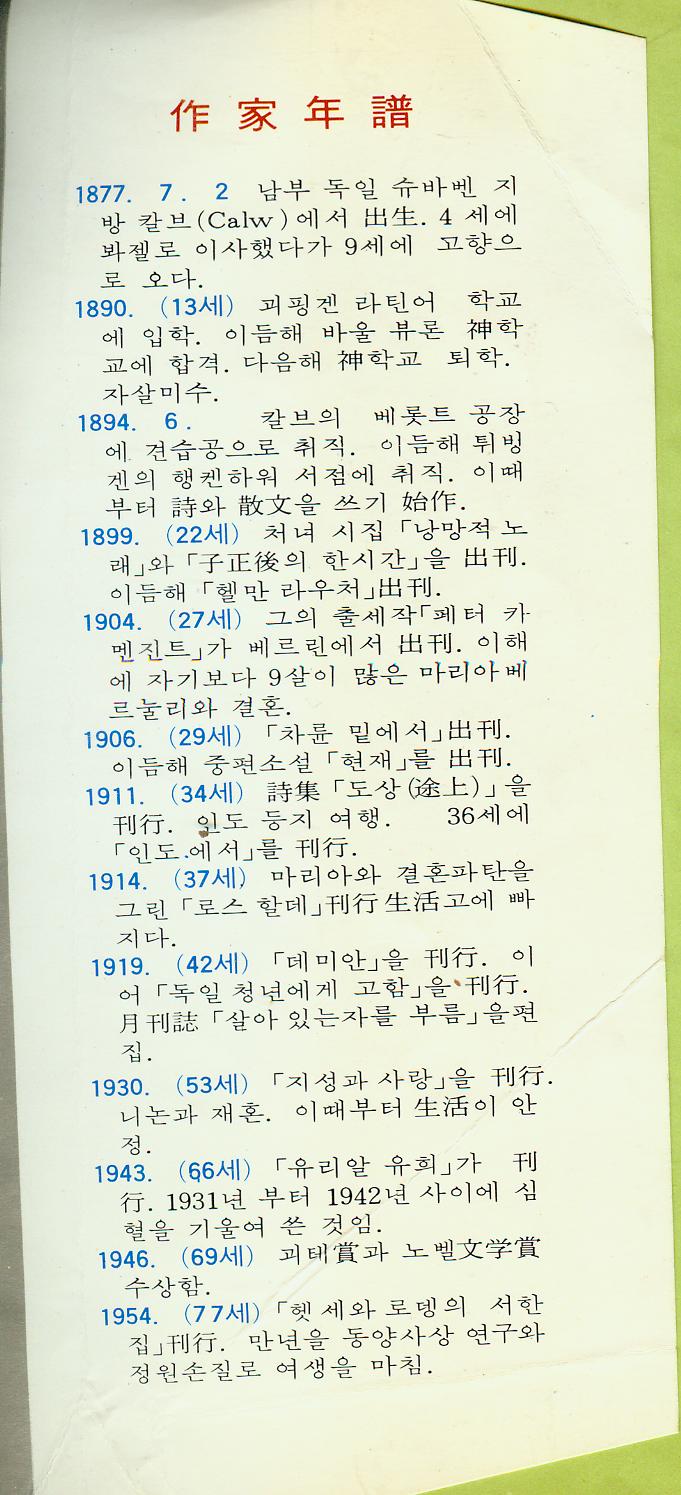 作家年譜
1877. 7. 2 남부 독일 슈바벤 지
방 칼브(Calw)에서 出生. 4 세에
봐젤로 이사했다가 9세에 고향으
로 오다.
1890. (13세) 괴핑겐 라틴어 학교
에 입학. 이듬해 바울 뷰론 神학
교에 합격. 다음해 神학교 퇴학.
자살미수.
1894. 6. 칼브의 베롯트 공장
에 견습공으로 취직. 이듬해 튀빙
겐의 행켄하워 서점에 취직. 이때
부터 詩와 散文을 쓰기 始作.
1899. (22세) 처녀 시집 「낭망적 노
래」와 「子正後의 한시간」을 出刊.
이듬해 「헬만 라우처」出刊.
1904. (27세) 그의 출세작「페터 카
멘진트」가 베르린에서 出刊. 이해
에 자기보다 9살이 많은 마리아베
르눌리와 결혼.
1906. (29세) 「차륜 밑에서」出刊.
이듬해 중편소설 「현재」를 出刊.
1911. (34세) 詩集 「도상(途上)」을
刊行. 인도 등지 여행. 36세에
「인도에서」를 刊行.
1914. (37세) 마리아와 결혼파탄을
그린 「로스 할데」刊行 生活고에 빠
지다.
1919. (42세) 「데미안」을 刊行. 이
어 「독일 청년에게 고함」을 刊行.
月刊誌 「살아 있는자를 부름」을편
집.
1930. (53세) 「지성과 사랑」을 刊行.
니논과 재혼. 이때부터 生活이 안
정.
1943. (66세) 「유리알 유희」가 刊
行. 1931년 부터 1942년 사이에 심
혈을 기울여 쓴 것임.
1946. (69세) 괴테賞과 노벨文学賞
수상함.
1954. (77세) 「헷세와 로뎅의 서한
집」刊行. 만년을 동양사상 연구와
정원손질로 여생을 마침.